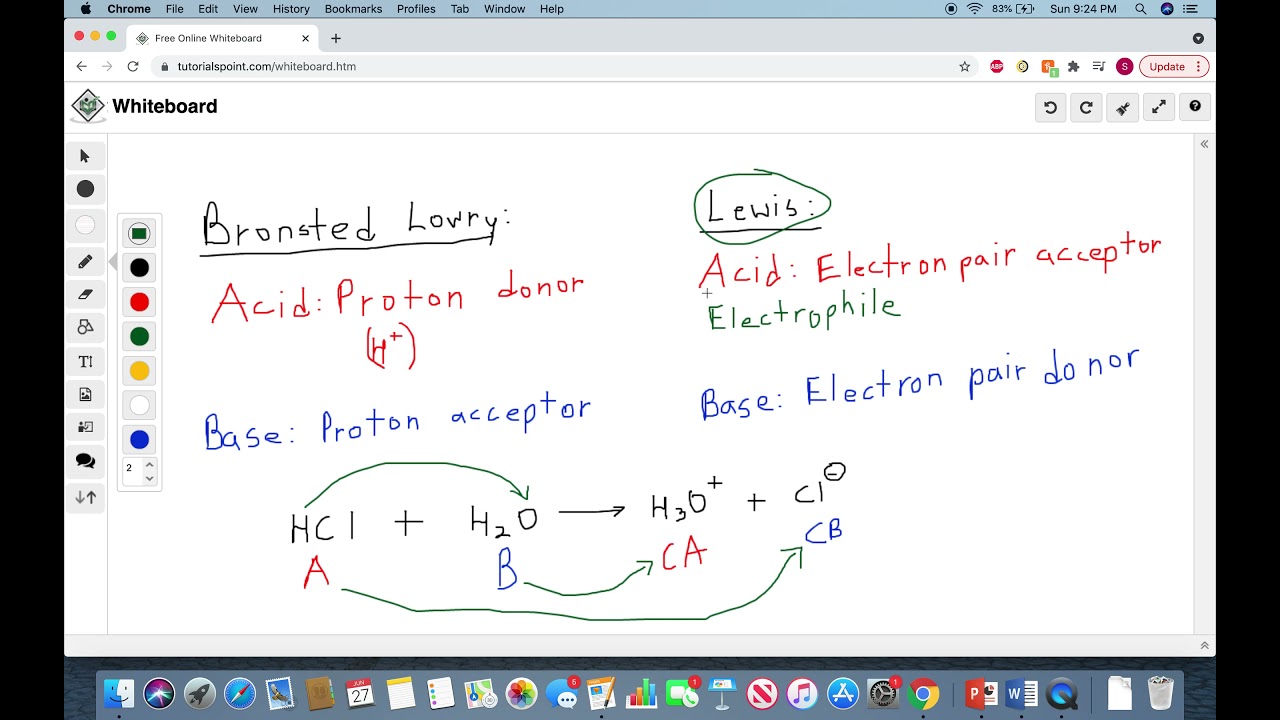 Chrome File Edit View History Bookmarks Profiles Tab Window Help 83% Sun 9:24 PM
Free Online Whiteboard
tutorialspoint.com/whiteboard.htm ABP 1 S Update
Whiteboard
Bronsted Lowry:
Acid: Proton donor
(H+)
Base: Proton acceptor
Lewis:
Acid: Electron pair acceptor
Electrophile
Base: Electron pair donor
HCl + H2O → H3O+ + Cl⊖
A B CA CB
T
2
JUN
27
5
1
1
P W